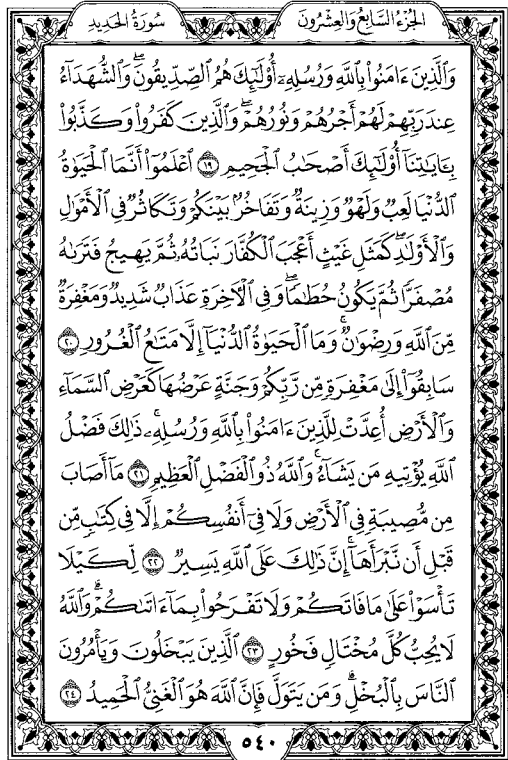 الجزء السابع والعشرون
سورة الحديد
وَالَّذِينَ ءَامَنُوا۟ بِاللَّهِ وَرُسُلِهِۦٓ أُو۟لَٰٓئِكَ هُمُ ٱلصِّدِّيقُونَ ۖ وَٱلشُّهَدَآءُ
عِندَ رَبِّهِمْ لَهُمْ أَجْرُهُمْ وَنُورُهُمْ ۖ وَٱلَّذِينَ كَفَرُوا۟ وَكَذَّبُوا۟
بِـَٔايَٰتِنَآ أُو۟لَٰٓئِكَ أَصْحَٰبُ ٱلْجَحِيمِ ١٩ ٱعْلَمُوٓا۟ أَنَّمَا ٱلْحَيَوٰةُ
ٱلدُّنْيَا لَعِبٌ وَلَهْوٌ وَزِينَةٌ وَتَفَاخُرٌۢ بَيْنَكُمْ وَتَكَاثُرٌ فِى ٱلْأَمْوَٰلِ
وَٱلْأَوْلَٰدِ ۖ كَمَثَلِ غَيْثٍ أَعْجَبَ ٱلْكُفَّارَ نَبَاتُهُۥ ثُمَّ يَهِيجُ فَتَرَىٰهُ
مُصْفَرًّا ثُمَّ يَكُونُ حُطَٰمًا ۖ وَفِى ٱلْءَاخِرَةِ عَذَابٌ شَدِيدٌ وَمَغْفِرَةٌ
مِّنَ ٱللَّهِ وَرِضْوَٰنٌ ۚ وَمَا ٱلْحَيَوٰةُ ٱلدُّنْيَآ إِلَّا مَتَٰعُ ٱلْغُرُورِ ٢٠
سَابِقُوٓا۟ إِلَىٰ مَغْفِرَةٍ مِّن رَّبِّكُمْ وَجَنَّةٍ عَرْضُهَا كَعَرْضِ ٱلسَّمَآءِ
وَٱلْأَرْضِ أُعِدَّتْ لِلَّذِينَ ءَامَنُوا۟ بِٱللَّهِ وَرُسُلِهِۦ ۚ ذَٰلِكَ فَضْلُ
ٱللَّهِ يُؤْتِيهِ مَن يَشَآءُ ۚ وَٱللَّهُ ذُو ٱلْفَضْلِ ٱلْعَظِيمِ ٢١ مَآ أَصَابَ
مِن مُّصِيبَةٍ فِى ٱلْأَرْضِ وَلَا فِىٓ أَنفُسِكُمْ إِلَّا فِى كِتَٰبٍ مِّن
قَبْلِ أَن نَّبْرَأَهَآ ۚ إِنَّ ذَٰلِكَ عَلَى ٱللَّهِ يَسِيرٌ ٢٢ لِّكَيْلَا
تَأْسَوْا۟ عَلَىٰ مَا فَاتَكُمْ وَلَا تَفْرَحُوا۟ بِمَآ ءَاتَىٰكُمْ ۗ وَٱللَّهُ
لَا يُحِبُّ كُلَّ مُخْتَالٍ فَخُورٍ ٢٣ ٱلَّذِينَ يَبْخَلُونَ وَيَأْمُرُونَ
ٱلنَّاسَ بِٱلْبُخْلِ ۗ وَمَن يَتَوَلَّ فَإِنَّ ٱللَّهَ هُوَ ٱلْغَنِىُّ ٱلْحَمِيدُ ٢٤
٥٤٠